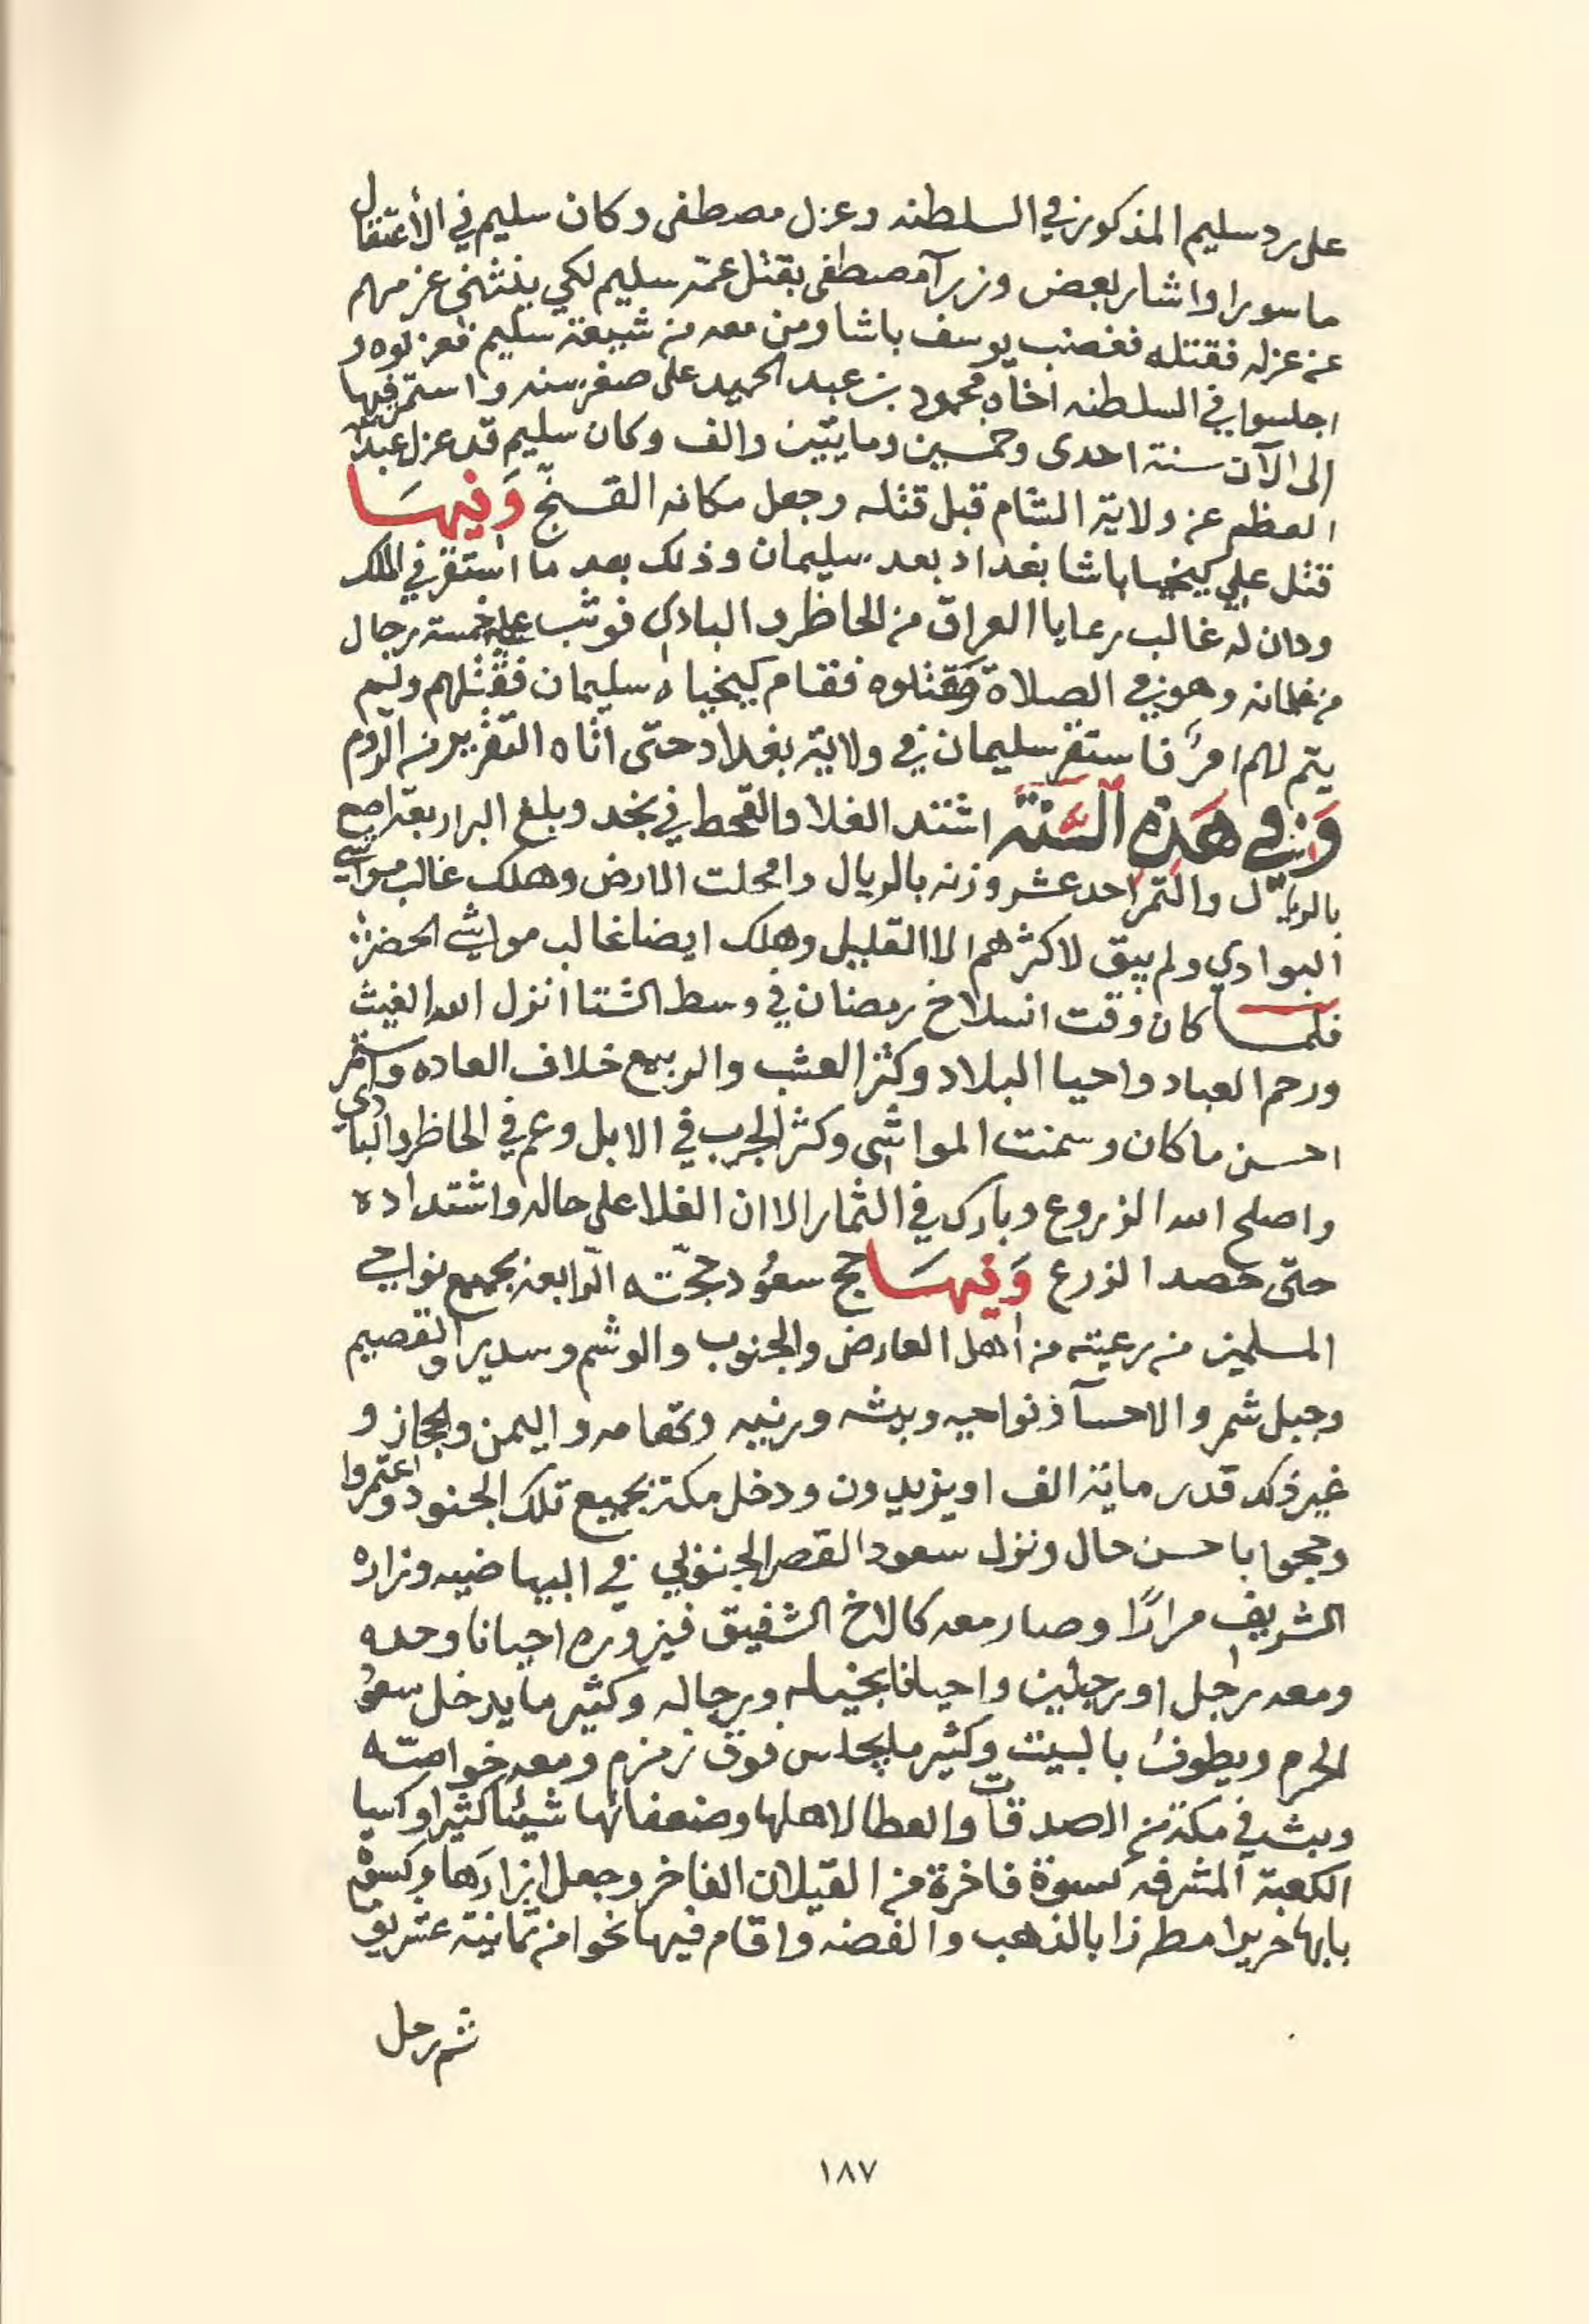 على رد سليم المذكور في السلطنه وعزل مصطفى وكان سليم في الأعتقال
ماسورا واشار بعض وزرآ مصطفى بقتل عمه سليم لكي ينثني عزمهم
عن عزله فقتله فغضب يوسف باشا ومن معه من شيعة سليم فعزلوه و
اجلسوا في السلطنه اخاه محمود بن عبد الحميد على صغر سنه واستمر فيها
الى الآن سنة احدى وخمسين ومايتين والف وكان سليم قد عزل عبدالله
العظم عن ولاية الشام قبل قتله وجعل مكانه القسنج وَفيهَا
قتل علي كيخيا باشا بغداد بعد سليمان وذلك بعد ما استقر في الملك
ودان له غالب رعايا العراق من الحاظر والبادي فوثب عليه خمسة رجال
من غلمانه وهو في الصلاة فقتلوه فقام كيخياه سليمان فقتلهم ولم
يتم لهم امرٌ فاستقر سليمان في ولاية بغداد حتى اتاه التقرير من الروم
وَفي هَذِهِ السَّنَة اشتد الغلا والقحط في نجد وبلغ البر اربعة اصع
بالريال والتمر احد عشر وزنه بالريال وامحلت الارض وهلك غالب مواشي
البوادي ولم يبق لاكثرهم الا القليل وهلك ايضا غالب مواشي الحضر
فلما كان وقت انسلاخ رمضان في وسط الشتا انزل الله الغيث
ورحم العباد واحيا البلاد وكثر العشب والربيع خلاف العاده واستمر
احسن ما كان وسمنت المواشي وكثر الجرب في الابل وعم في الحاظر والبادي
واصلح الله الزروع وبارك في الثمار الا ان الغلا على حاله واشتداده
حتى حصد الزرع وَفيهَا حج سعُود حجّته الرّابعه بجميع نواحي
المسلمين من رعيته من اهل العارض والجنوب والوشم وسدير والقصيم
وجبل شمر والاحسآ ونواحيه وبيشه ورنيه وتهامه واليمن والحجاز و
غير ذلك قدر ماية الف او يزيدون ودخل مكة بجميع تلك الجنود واعتمروا
وحجوا باحسن حال ونزل سعود القصر الجنوبي في البياضيه وزاره
الشريف مرارًا وصار معه كالاخ الشفيق فيزوره احيانا وحده
ومعه رجل او رجلين واحيانا بخيله ورجاله وكثير ما يدخل سعود
الحرم ويطوف بالبيت وكثير ما يجلس فوق زمزم ومعه خواصّه
وبث في مكة من الصدقات والعطا لاهلها وضعفائها شيئا كثيرا وكسا
الكعبة المشرفه كسوة فاخرة من القيلان الفاخر وجعل ازارَها وكسوة
بابها حريرا مطرزا بالذهب والفضه واقام فيها نحوا من ثمانية عشر يوما
ثم رحل
١٨٧